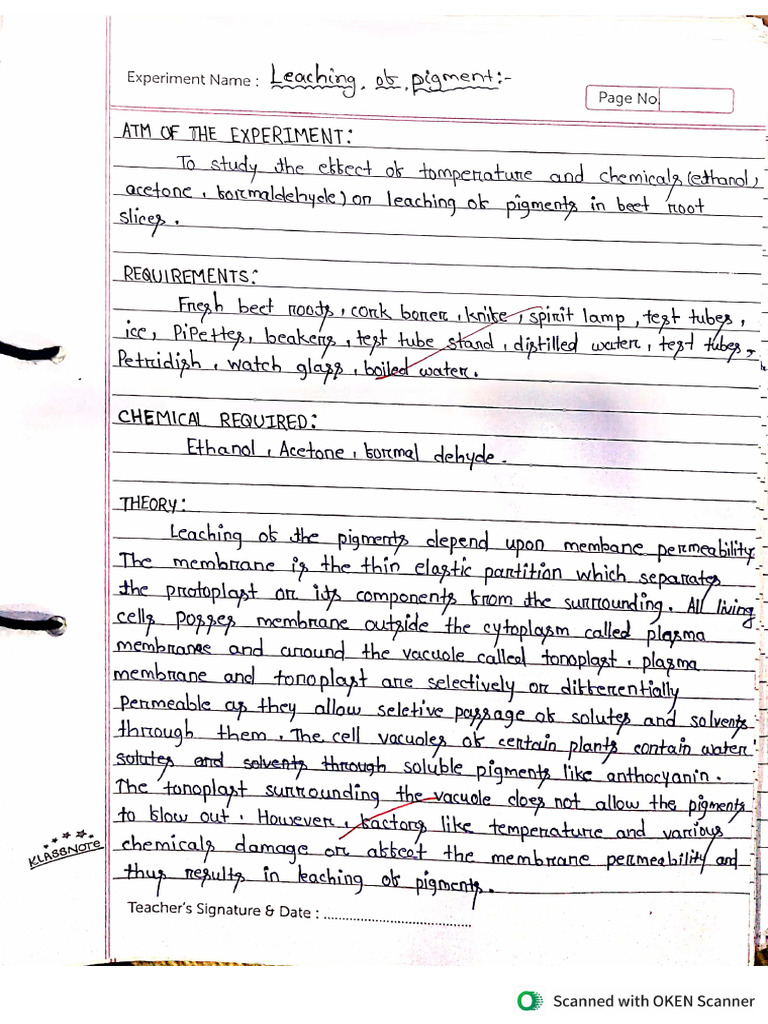 Experiment Name : Leaching of pigment:-
Page No.
AIM OF THE EXPERIMENT:
To study the effect of tomperature and chemicals (ethanol,
acetone, formaldehyde) on leaching of pigments in beet root
slices.
REQUIREMENTS:
Fresh beet roots, cork borer, knife, spirit lamp, test tubes,
ice, PiPettes, beakers, test tube stand, distilled water, test tubes,
Petridish, watch glass, boiled water.
CHEMICAL REQUIRED:
Ethanol, Acetone, formal dehyde.
THEORY:
Leaching of the pigments depend upon membane permeability
The membrane is the thin elastic partition which separates
the protoplast or its components from the surrounding. All living
cells posses membrane outside the cytoplasm called plasma
membranes and around the vacuole called tonoplast. plasma
membrane and tonoplast are selectively or differentially
permeable as they allow seletive passage of solutes and solvents
through them. The cell vacuoles of certain plants contain water
solutes and solvents through soluble pigments like anthocyanin.
The tonoplast surrounding the vacuole does not allow the pigments
to flow out. However, factors like temperature and various
chemicals damage or affect the membrane permeability and
thus results in leaching of pigments.
KLASSNOTE
Teacher's Signature & Date : ........................................
Scanned with OKEN Scanner